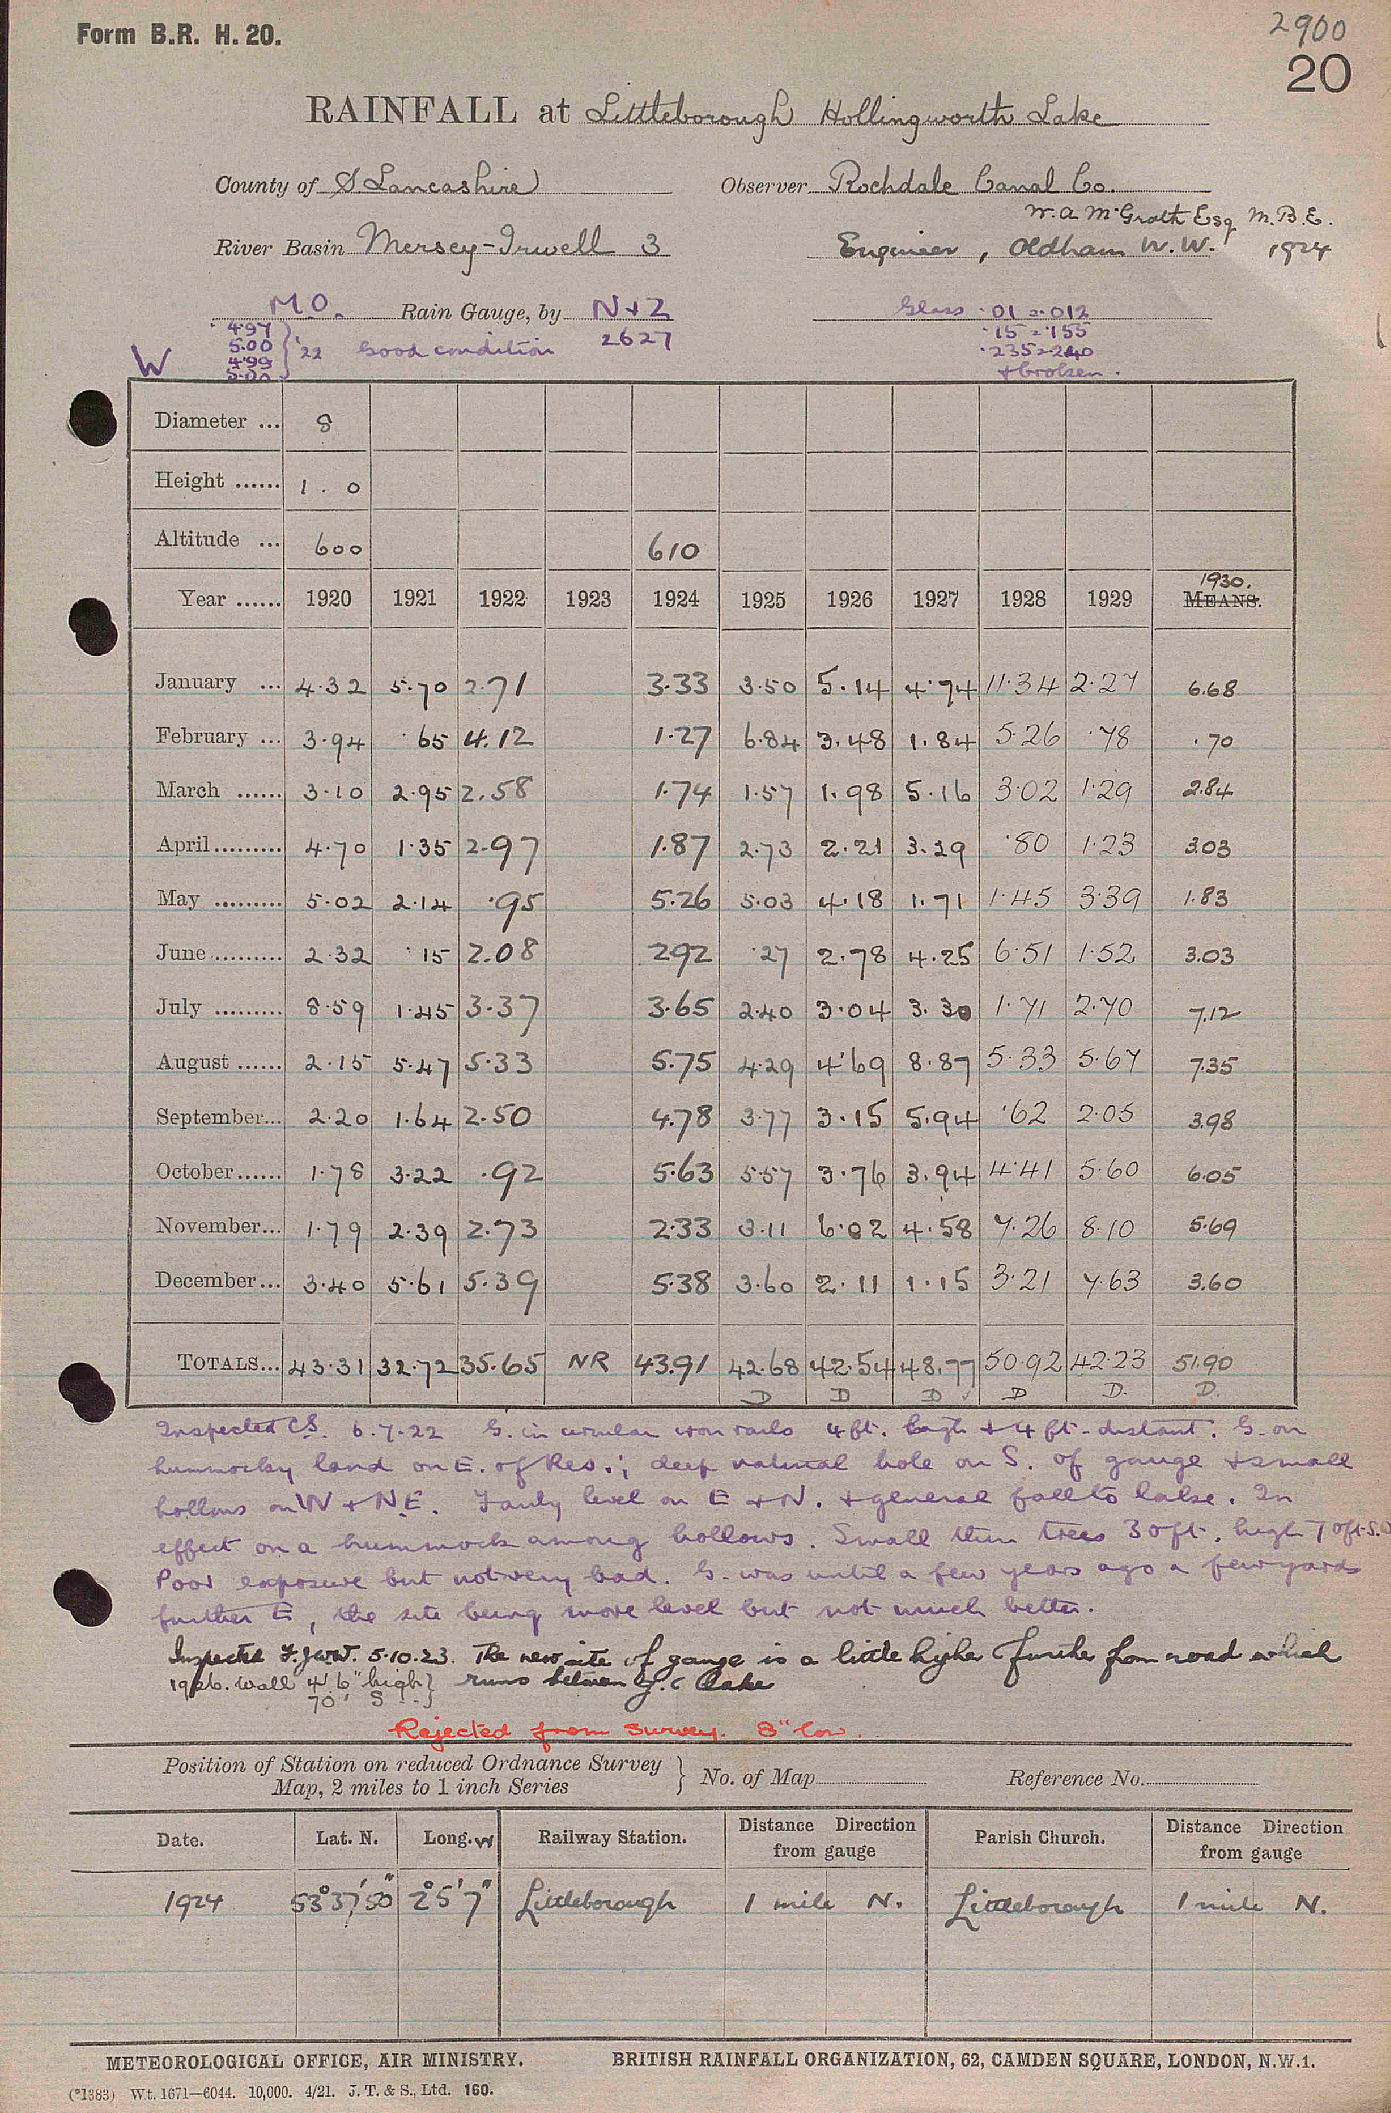 Form B.R. H. 20.
2900
20
RAINFALL at Littleborough Hollingworth Lake
County of S Lancashire
Observer Rochdale Canal Co.
W. A. McGrath Esq M.B.E.
River Basin Mersey-Irwell 3
Engineer, Oldham W.W. 1924
M.O. Rain Gauge, by N+Z
Glass .01 = .012
4.97
5.00
4.99
5.00
'22 Good condition 2627
.15 = .155
.235 = 240
W
+ broken.
Diameter ... 8
Height ...... 1 . 0
Altitude ... 600 610
Year ...... 1920 1921 1922 1923 1924 1925 1926 1927 1928 1929 1930. MEANS.
January ... 4.32 5.70 2.71 3.33 3.50 5.14 4.74 11.34 2.27 6.68
February ... 3.94 .65 4.12 1.27 6.84 3.48 1.84 5.26 .78 .70
March ...... 3.10 2.95 2.58 1.74 1.57 1.98 5.16 3.02 1.29 2.84
April ......... 4.70 1.35 2.97 1.87 2.73 2.21 3.29 .80 1.23 3.03
May ......... 5.02 2.14 .95 5.26 5.03 4.18 1.71 1.45 3.39 1.83
June ......... 2.32 .15 2.08 2.92 .27 2.78 4.25 6.51 1.52 3.03
July ......... 8.59 1.45 3.37 3.65 2.40 3.04 3.30 1.71 2.70 7.12
August ...... 2.15 5.47 5.33 5.75 4.29 4.69 8.87 5.33 5.67 7.35
September... 2.20 1.64 2.50 4.78 3.77 3.15 5.94 .62 2.05 3.98
October...... 1.78 3.22 .92 5.63 5.57 3.76 3.94 4.41 5.60 6.05
November... 1.79 2.39 2.73 2.33 3.11 6.02 4.58 7.26 8.10 5.69
December... 3.40 5.61 5.39 5.38 3.60 2.11 1.15 3.21 7.63 3.60
TOTALS... 43.31 32.72 35.65 NR 43.91 42.68 42.54 48.77 50.92 42.23 51.90
D D D D D. D.
Inspected C.S. 6.7.22 G. in circular iron rails 4 ft. high + 4 ft. distant. G. on
hummocky land on E. of Res.; deep natural hole on S. of gauge + small
hollows on W + NE. Fairly level on E + N. + general fall to lake. In
effect on a hummock among hollows. Small thin trees 30 ft. high 70 ft S.
Poor exposure but not very bad. G. was until a few years ago a few yards
further E, the site being more level but not much better.
Inspected F.J.W.W. 5.10.23. The new site of gauge is a little higher & further from road which
1926. wall 4' 6" high runs between g. & lake
70' S
Rejected from survey. 8" low.
Position of Station on reduced Ordnance Survey
Map, 2 miles to 1 inch Series
No. of Map
Reference No.
Date. Lat. N. Long. W Railway Station. Distance Direction from gauge Parish Church. Distance Direction from gauge
1924 53° 37' 50" 2° 5' 7" Littleborough 1 mile N. Littleborough 1 mile N.
METEOROLOGICAL OFFICE, AIR MINISTRY. BRITISH RAINFALL ORGANIZATION, 62, CAMDEN SQUARE, LONDON, N.W.1.
(*1383) Wt. 1671—6044. 10,000. 4/21. J. T. & S., Ltd. 160.